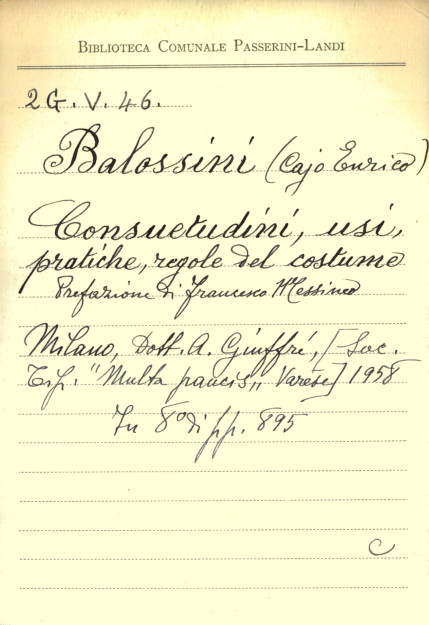 BIBLIOTECA COMUNALE PASSERINI-LANDI
2G. V. 46.
Balossini (Cajo Enrico)
Consuetudini, usi,
pratiche, regole del costume
Prefazione di Francesco Messineo
Milano, Dott. A. Giuffré, [Soc.
Tip. "Multa paucis„ Varese] 1958
In 8º di pp. 895
C